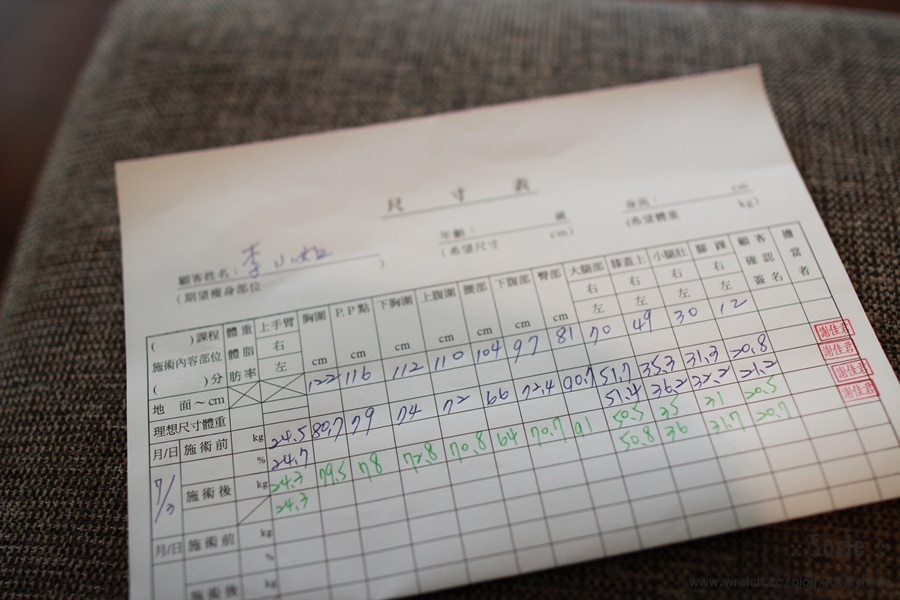 尺 寸 表
顧客姓名：李小姐
年齡： 歲
身高： cm
(期望瘦身部位 )
(希望尺寸 cm)
(希望體重 kg)
( )課程 體重 上手臂 胸圍 P.P點 下胸圍 上腹圍 腰部 下腹部 臀部 大腿部 膝蓋上 小腿肚 腳踝 顧客確認簽名 擔當者
施術內容部位 體脂肪率 右 右 右 右 右
( )分 左 cm cm cm cm cm cm cm cm 左 左 左 左
地 面～cm 122 116 112 110 104 97 81 70 49 30 12
理想尺寸體重 謝佳君
月/日 施術前 kg 24.5 80.7 79 74 72 66 72.4 90.7 51.7 35.3 31.3 20.8 謝佳君
% 24.7 51.4 36.2 32.2 21.2 謝佳君
施術後 kg 24.3 79.5 78 72.8 70.8 64 70.7 91 50.5 35 31 20.5 謝佳君
24.3 50.8 36 31.7 20.7
月/日 施術前 kg
%
施術後 kg